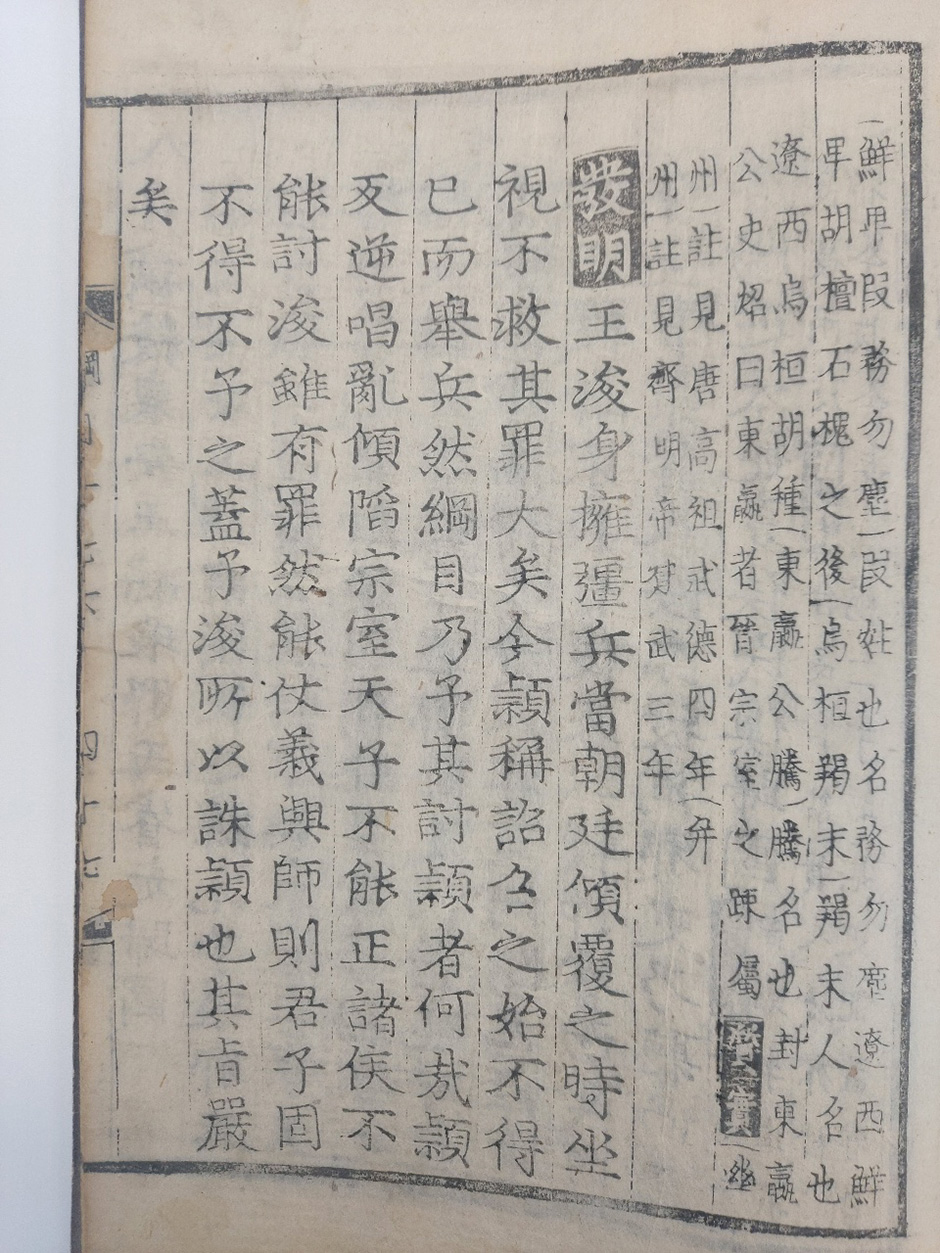 鮮卑段務勿塵段姓也名務勿塵遼西鮮
卑胡檀石槐之後烏桓羯末羯末人名也
遼西烏桓胡種東嬴公騰騰名也封東嬴
公史炤曰東嬴者晉宗室之疎屬質實幽
州註見唐高祖武德四年并
州註見齊明帝建武三年
發明王浚身擁彊兵當朝廷傾覆之時坐
視不救其罪大矣今頴稱詔召之始不得
已而舉兵然綱目乃予其討頴者何哉頴
反逆唱亂傾陷宗室天子不能正諸侯不
能討浚雖有罪然能仗義興師則君子固
不得不予之蓋予浚所以誅頴也其旨嚴
矣